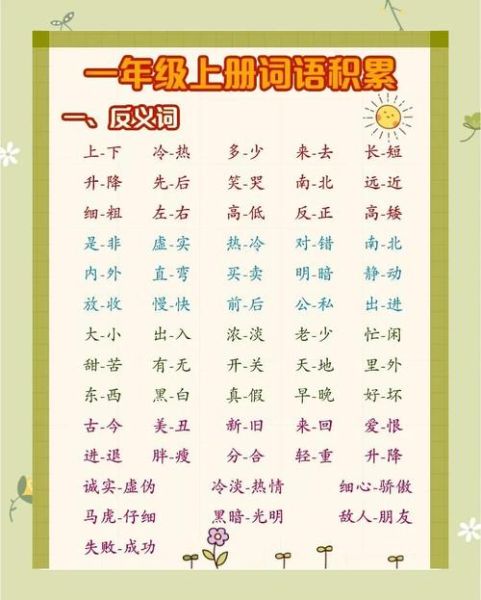 一年级上册词语积累
一、反义词
上-下 冷-热 多-少 来-去 长-短
升-降 先-后 笑-哭 南-北 远-近
细-粗 左-右 高-低 反-正 高-矮
是-非 虚-实 热-冷 对-错 南-北
内-外 直-弯 买-卖 明-暗 静-动
放-收 慢-快 前-后 公-私 出-进
大-小 出-入 浓-淡 老-少 忙-闲
甜-苦 有-无 开-关 天-地 里-外
东-西 黑-白 真-假 早-晚 好-坏
古-今 美-丑 新-旧 来-回 爱-恨
进-退 胖-瘦 分-合 轻-重 升-降
诚实-虚伪 冷淡-热情 细心-骄傲
马虎-仔细 黑暗-光明 敌人-朋友
失败-成功